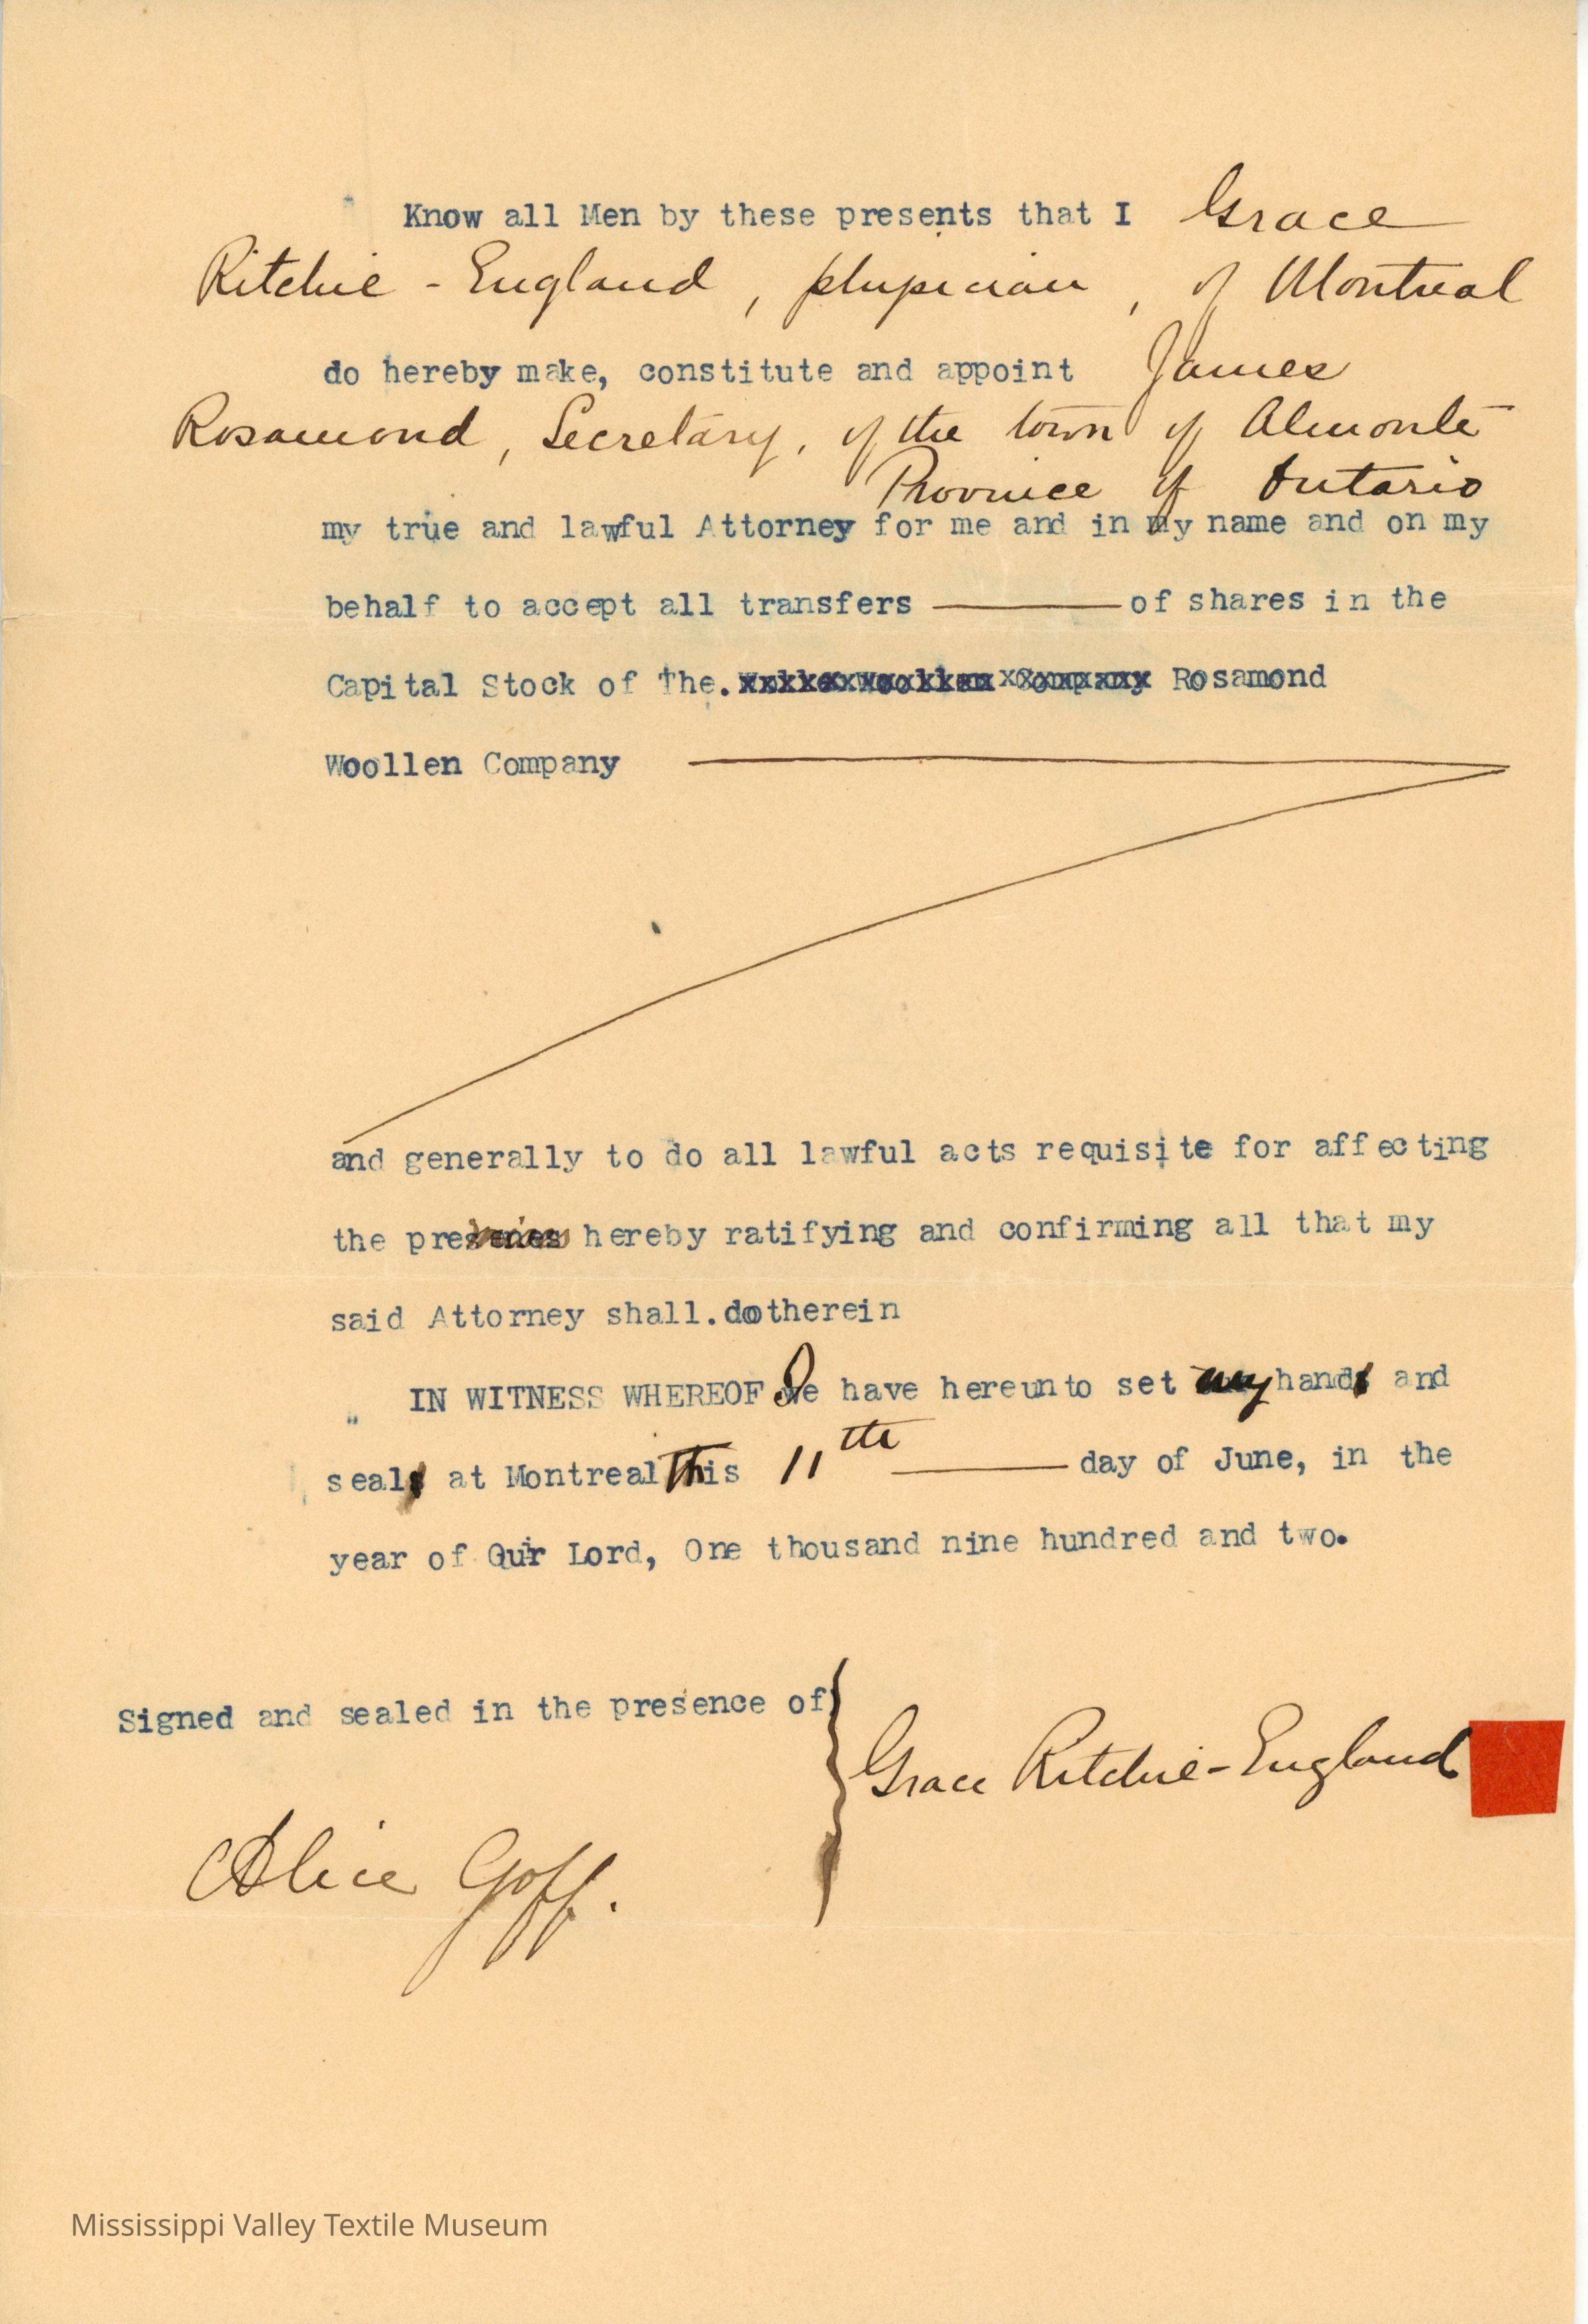 Know all Men by these presents that I Grace
Ritchie-England, physician, of Montreal
do hereby make, constitute and appoint James
Rosamond, Secretary, of the town of Almonte
Province of Ontario
my true and lawful Attorney for me and in my name and on my
behalf to accept all transfers ——— of shares in the
Capital Stock of The. Rosamond
Woollen Company
and generally to do all lawful acts requisite for affecting
the hereby ratifying and confirming all that my
said Attorney shall.do therein
IN WITNESS WHEREOF I have hereunto set my hand and
seal at Montreal this 11th ——— day of June, in the
year of Our Lord, One thousand nine hundred and two.
Signed and sealed in the presence of
Grace Ritchie-England
Alice Goff.
Mississippi Valley Textile Museum